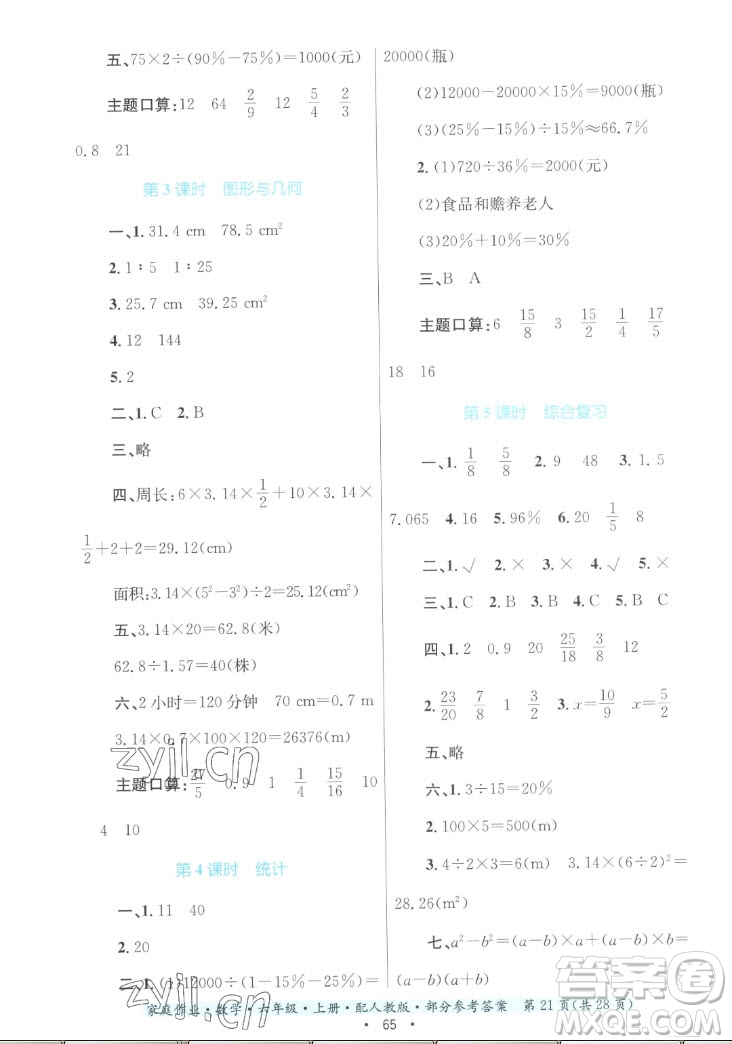 五、75×2÷(90%－75%)＝1000(元)
主题口算:12 64 2/9 12 5/4 2/3
0.8 21
第 3 课时 图形与几何
一、1.31.4 cm 78.5 cm²
2.1∶5 1∶25
3.25.7 cm 39.25 cm²
4.12 144
5.2
二、1.C 2.B
三、略
四、周长:6×3.14×1/2＋10×3.14×
1/2＋2＋2＝29.12(cm)
面积:3.14×(5²－3²)÷2＝25.12(cm²)
五、3.14×20＝62.8(米)
62.8÷1.57＝40(株)
六、2 小时＝120 分钟 70 cm＝0.7 m
3.14×0.7×100×120＝26376(m)
主题口算:27/5 0.9 1 1/4 15/16 10
4 10
第 4 课时 统计
一、1.11 40
2.20
二、1.(1)12000÷(1－15%－25%)＝
20000(瓶)
(2)12000－20000×15%＝9000(瓶)
(3)(25%－15%)÷15%≈66.7%
2.(1)720÷36%＝2000(元)
(2)食品和赡养老人
(3)20%＋10%＝30%
三、B A
主题口算:6 15/8 3 15/2 1/4 17/5
18 16
第 5 课时 综合复习
一、1.1/8 5/8 2.9 48 3.1.5
7.065 4.16 5.96% 6.20 1/5 8
二、1.√ 2.× 3.× 4.×
三、1.C 2.B 3.C 4.C 5.B
四、1.2 0.9 20 25/18 3/8 12
2.23/20 7/8 1 3/2 3.x＝10/9 x＝5/2
五、略
六、1.3÷15＝20%
2.100×5＝500(m)
3.6÷2＝3(m) 3.14×3²＝
28.26(m²)
七、a²－b²＝(a－b)×a＋(a－b)×b＝
(a－b)(a＋b)
家庭作业·数学·六年级·上册·配人教版·部分参考答案 第 21 页(共 28 页)
65
zyjl.cn
zyjl.cn
答案圈